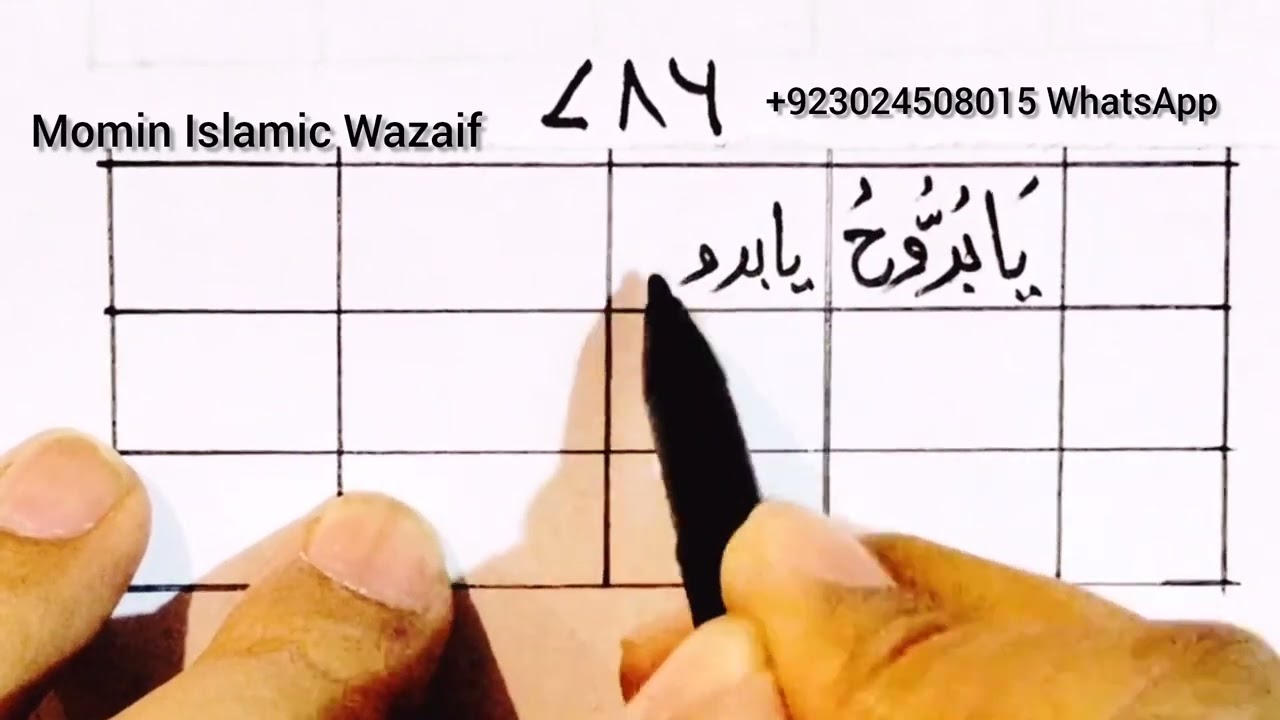 Momin Islamic Wazaif
+923024508015 WhatsApp
۷۸۶
يَا بُدُّوحُ يابدو